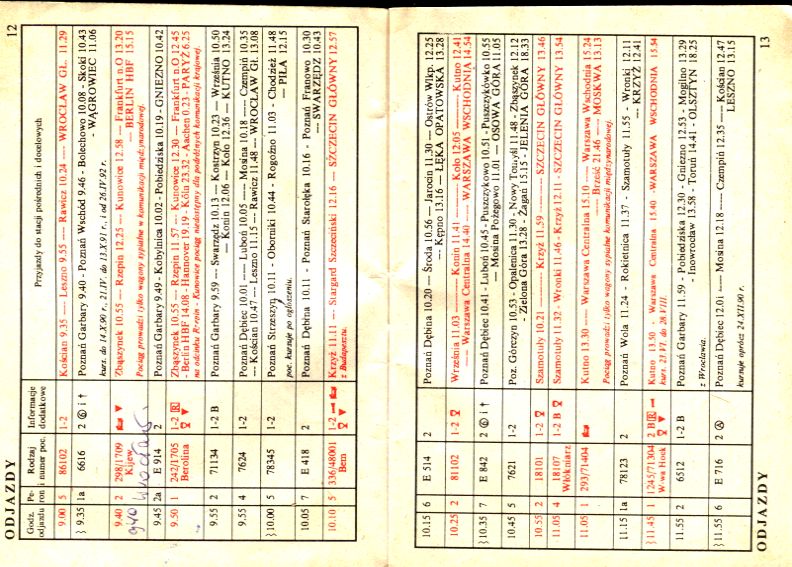 12
ODJAZDY
Godz. odjazdu
Pe-ron
Rodzaj i numer poc.
Informacje dodatkowe
Przyjazdy do stacji pośrednich i docelowych
9.00 5 86102 1-2 Kościan 9.35 — Leszno 9.55 — Rawicz 10.24 — WROCŁAW Gł. 11.29
9.35 1a 6616 2 Poznań Garbary 9.40 - Poznań Wschód 9.46 - Bolechowo 10.08 - Skoki 10.43
- WĄGROWIEC 11.06
kurs. do 14.X.90 r., 21.IV. do 13.X.91 r., i od 26.IV.92 r.
9.40 2 298/1709 Zbąszynek 10.55 — Rzepin 12.25 — Kunowice 12.58 — Frankfurt n.O 13.20
Kijew — BERLIN HBF 15.15
Pociąg prowadzi tylko wagony sypialne w komunikacji międzynarodowej.
9.45 2a E 914 2 Poznań Garbary 9.49 - Kobylnica 10.02 - Pobiedziska 10.19 - GNIEZNO 10.42
9.50 1 242/1705 1-2 R Zbąszynek 10.55 — Rzepin 11.57 — Kunowice 12.30 — Frankfurt n.O 12.45
Berolina - Berlin HBF 14.08 - Hannover 19.19 - Köln 23.32 - Aachen 0.23 - PARYŻ 6.25
na odcinku Rzepin - Kunowice pociąg niedostępny dla podróżnych komunikacji krajowej.
9.55 2 71134 1-2 B Poznań Garbary 9.59 — Swarzędz 10.13 — Kostrzyn 10.23 — Września 10.50
— Konin 12.06 — Koło 12.36 — KUTNO 13.24
9.55 4 7624 1-2 Poznań Dębiec 10.01 — Luboń 10.05 — Mosina 10.18 — Czempiń 10.35
— Kościan 10.47 — Leszno 11.15 — Rawicz 11.48 — WROCŁAW Gł. 13.08
10.00 5 78345 1-2 Poznań Strzeszyn. 10.11 - Oborniki 10.44 - Rogoźno 11.03 - Chodzież 11.48
— PIŁA 12.15
poc. kursuje po ogłoszeniu.
10.05 7 E 418 2 Poznań Dębina 10.11 - Poznań Starołęka 10.16 - Poznań Franowo 10.30
— SWARZĘDZ 10.43
10.10 5 336/48001 1-2 Krzyż 11.11 — Stargard Szczeciński 12.16 — SZCZECIN GŁÓWNY 12.57
Bem z Budapesztu.
10.15 6 E 514 2 Poznań Dębina 10.20 — Środa 10.56 — Jarocin 11.30 — Ostrów Wlkp. 12.25
— Kępno 13.16 — ŁĘKA OPATOWSKA 13.28
10.25 2 81102 1-2 Września 11.03 — Konin 11.41 — Koło 12.05 — Kutno 12.41
— Warszawa Centralna 14.40 — WARSZAWA WSCHODNIA 14.54
10.35 7 E 842 2 Poznań Dębiec 10.41 - Luboń 10.45 - Puszczykowo 10.51 - Puszczykówko 10.55
- Mosina Pożegowo 11.01 — OSOWA GÓRA 11.05
10.45 5 7621 1-2 Poz. Górczyn 10.53 - Opalenica 11.30 - Nowy Tomyśl 11.48 - Zbąszynek 12.12
- Zielona Góra 13.28 - Żagań 15.15 - JELENIA GÓRA 18.33
10.55 2 18101 1-2 Szamotuły 10.21 — Krzyż 11.59 — SZCZECIN GŁÓWNY 13.46
11.05 4 18107 1-2 B Szamotuły 11.32 - Wronki 11.46 - Krzyż 12.11 - SZCZECIN GŁÓWNY 13.54
Włókniarz
11.05 1 293/71404 Kutno 13.30 — Warszawa Centralna 15.10 — Warszawa Wschodnia 15.24
— Brześć 21.46 — MOSKWA 13.13
Pociąg prowadzi tylko wagony sypialne komunikacji międzynarodowej.
11.15 1a 78123 2 Poznań Wola 11.24 - Rokietnica 11.37 - Szamotuły 11.55 - Wronki 12.11
— KRZYŻ 12.41
11.45 1 1245/71304 2 B R Kutno 13.50 - Warszawa Centralna 15.40 - WARSZAWA WSCHODNIA 15.54
W-wa Hoek kurs. 23.VI. do 28.VIII.
11.55 2 6512 1-2 B Poznań Garbary 11.59 - Pobiedziska 12.30 - Gniezno 12.53 - Mogilno 13.29
- Inowrocław 13.58 - Toruń 14.41 - OLSZTYN 18.25
z Wrocławia.
11.55 6 E 716 2 Poznań Dębiec 12.01 — Mosina 12.18 — Czempiń 12.35 — Kościan 12.47
LESZNO 13.15
kursuje oprócz 24.XII.90 r.
ODJAZDY
13